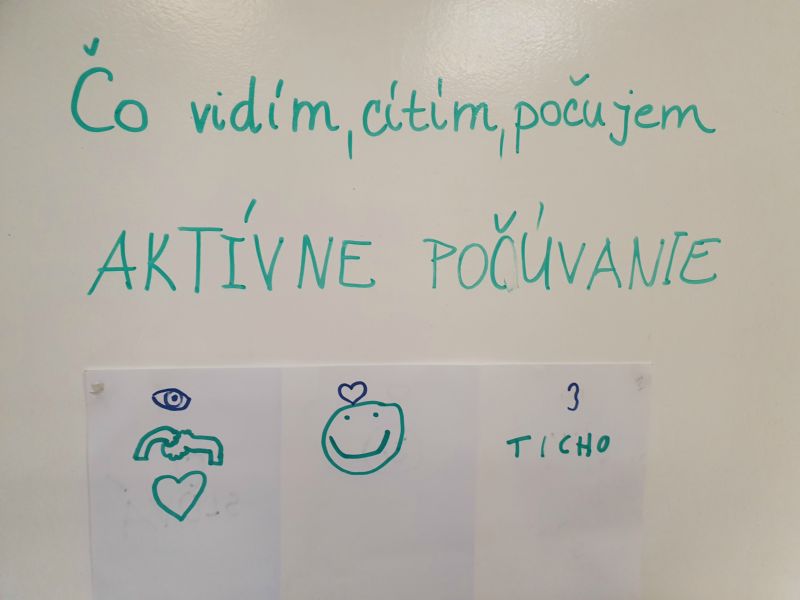 Čo vidím, cítim, počujem
AKTÍVNE POČÚVANIE
TICHO